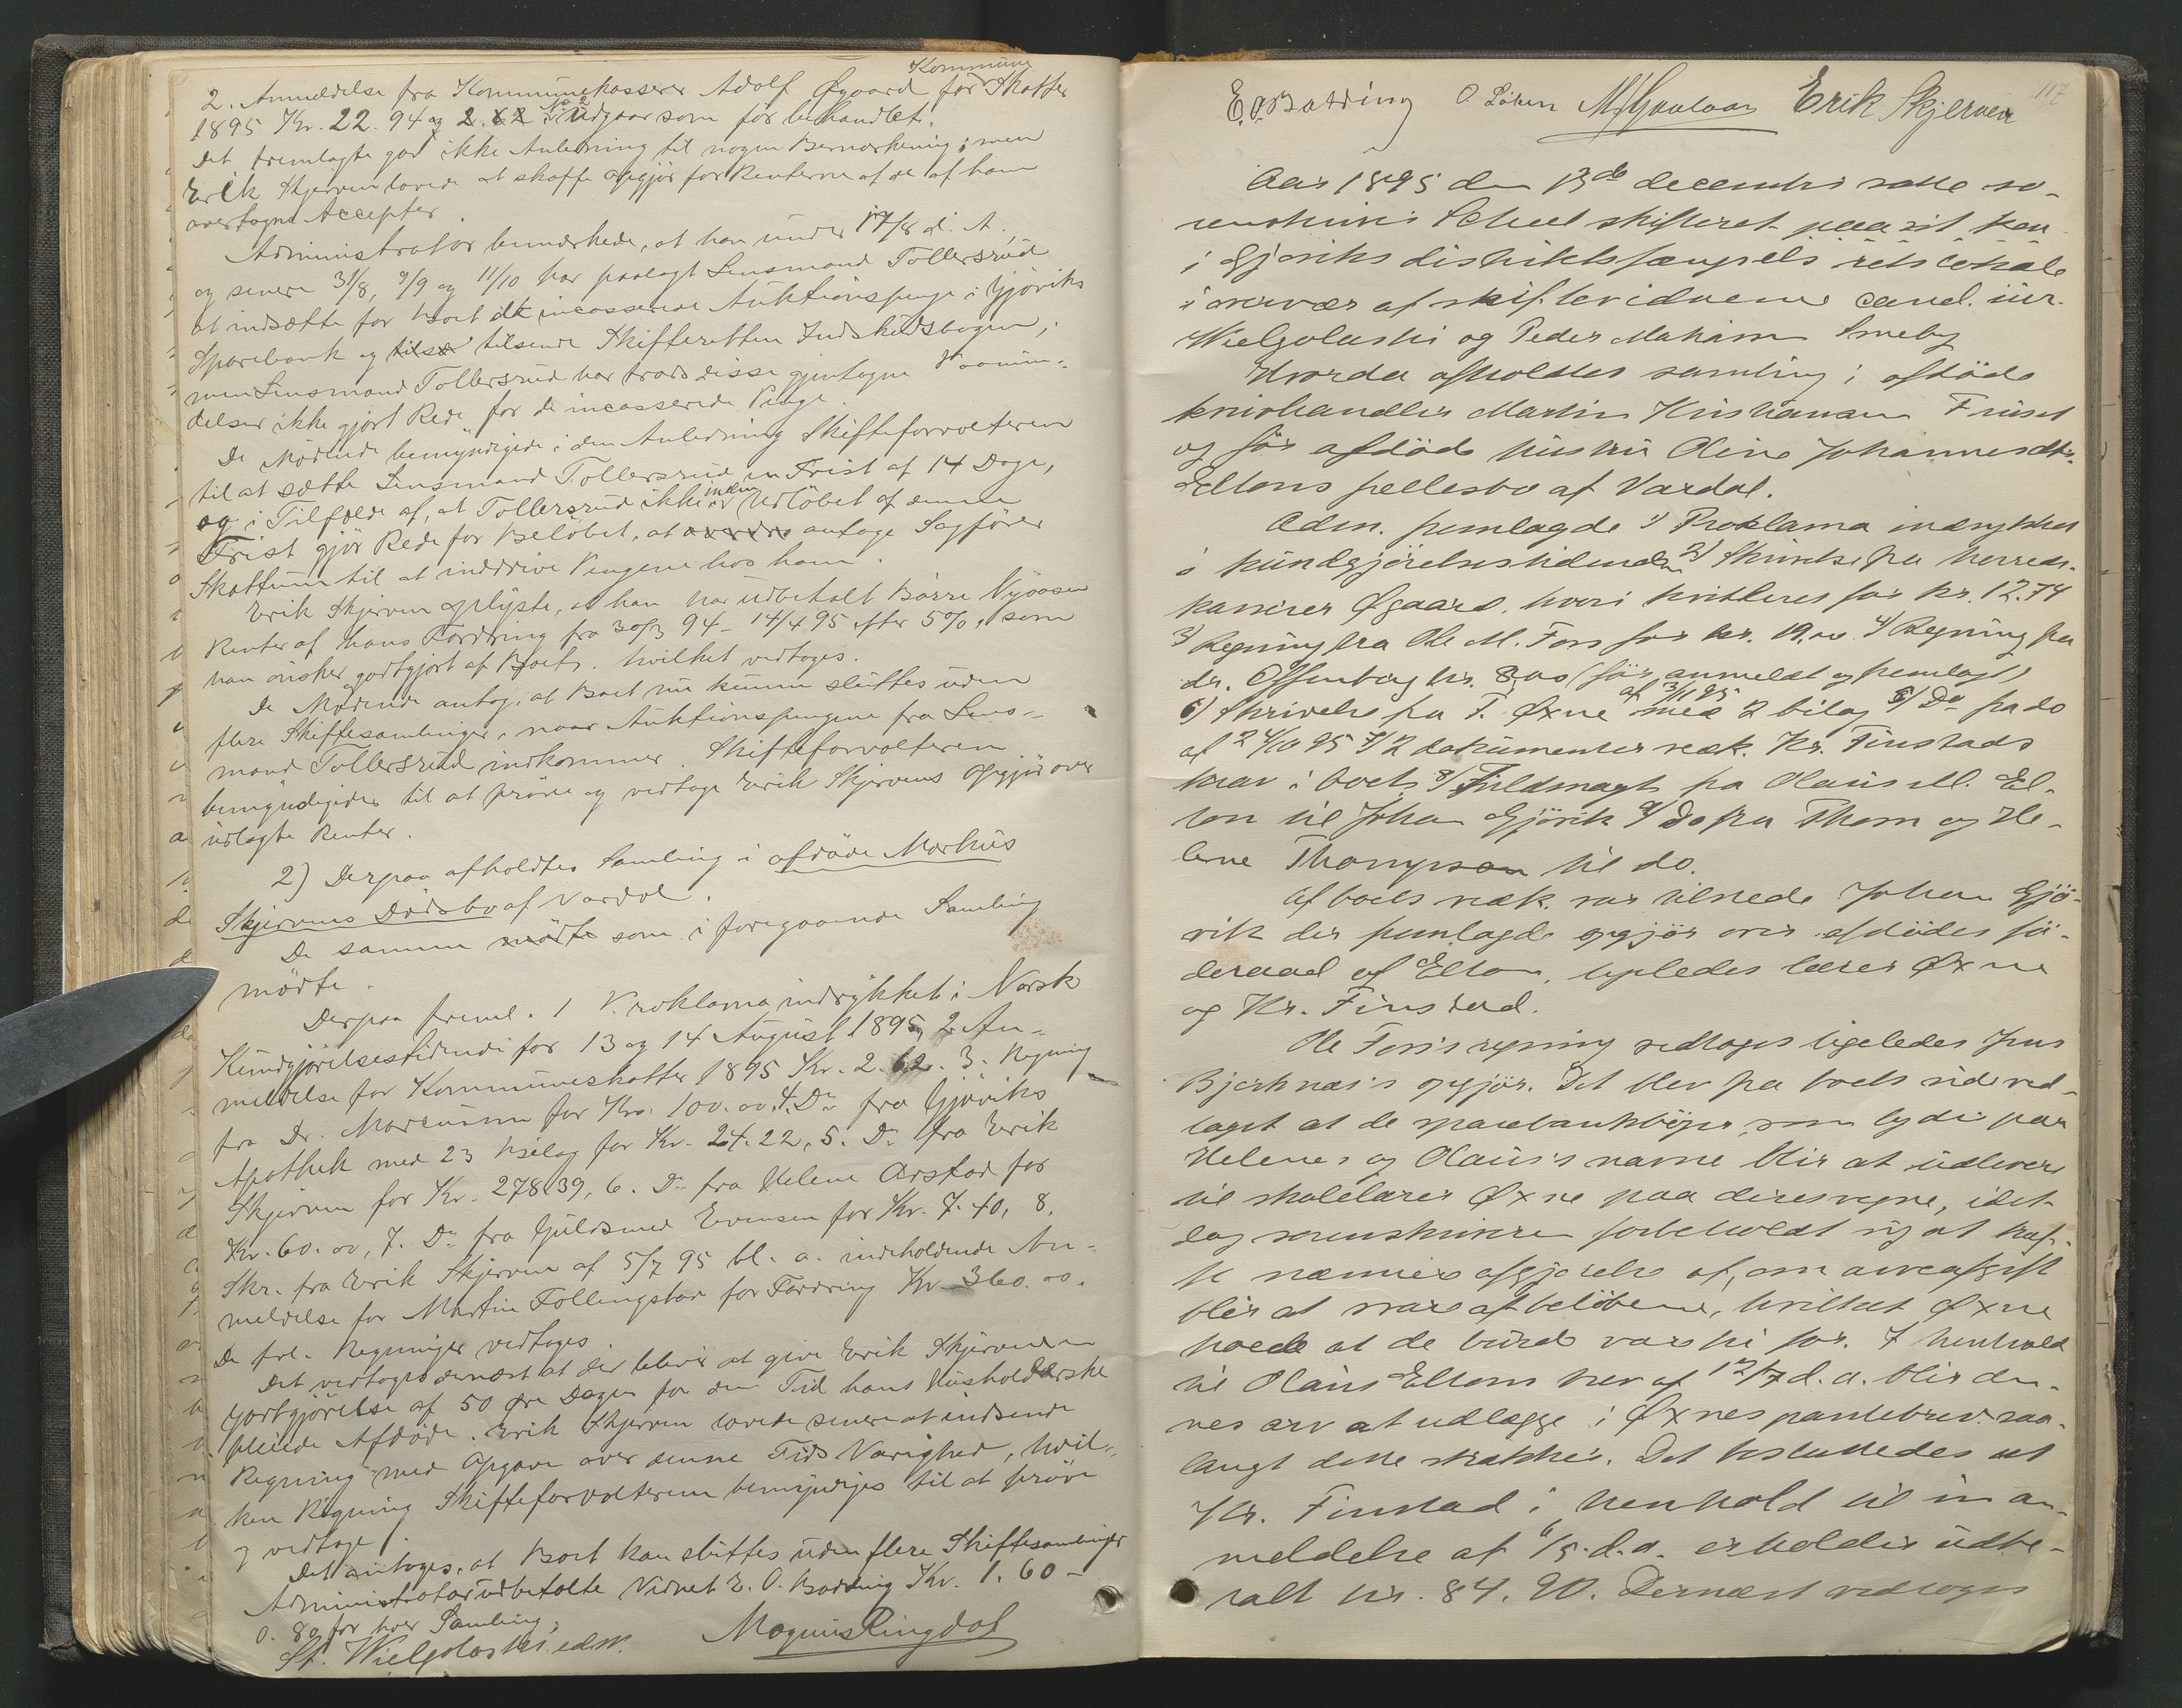 2. Anmeldelse fra Kommunekasserer Adolf Øgaard for Kommune Skatter
1895 Kr. 22.94 og 2.62 No 2 Udgaar som før behandlet.
Det fremlagte gav ikke Anledning til nogen Bemærkning; men
Erik Skjerven lovede at skaffe Opgjør for Renterne af de af ham
overtagne Accepter.
Administrator bemærkede, at han under 17/8 d. A.
og senere 31/8, 9/9 og 11/10 har paalagt Lensmand Tollersrud
at indsætte for Boet de incasserede Auktionspenge i Gjøviks
Sparebank og tilse tilsende Skifteretten Indskudsbogen;
men Lensmand Tollersrud har trods disse gjentagne Paamin-
delser ikke gjort Rede for de incasserede Penge.
De Mødende bemyndigede i den Anledning Skifteforvalteren
til at sætte Lensmand Tollersrud en Frist af 14 Dage,
og i Tilfælde af, at Tollersrud ikke inden Udløbet af denne
Frist gjør Rede for Beløbet, at antage Sagfører
Skattum til at inddrive Pengene hos ham.
Erik Skjerven oplyste, at han har udbetalt Børre Nyøosen
Renter af hans Fordring fra 30/3 94 - 14/4 95 efter 5%, som
han ønsker godtgjort af Boet. hvilket vedtoges.
De Mødende antog, at Boet nu kunne sluttes uden
flere Skiftesamlinger, naar Auktionspengene fra Lens-
mand Tollersrud indkommer. Skifteforvalteren
bemyndigedes til at prøve og vedtage Erik Skjervens Opgjør over
udlagte Renter.
2) Derpaa afholdtes Samling i afdøde Markus
Skjervens Dødsbo af Vardal.
De samme mødte som i foregaaende Samling
mødte.
Derpaa freml. 1 Proklama indrykket i Norsk
Kundgjørelsestidende for 13 og 14 August 1895, 2 An-
meldelse for Kommuneskatter 1895 Kr. 2.62. 3. Regning
fra Dr. Marcussen for Kr. 100.00, 4. Do fra Gjøviks
Apothek med 23 Bilag for Kr. 24.22, 5. Do fra Erik
Skjerven for Kr. 278.39, 6. Do fra Helene Arstad for
Kr. 60.00, 7. Do fra Guldsmed Evensen for Kr. 7.40, 8.
Skr. fra Erik Skjerven af 5/7 95 bl. a. indeholdende An-
meldelse for Martin Follingstad for Fordring Kr 360.00.
De frl. Regninger vedtoges
Det vedtoges dernæst at der blev at give Erik Skjerven en
Godtgjørelse af 50 Øre Dagen for den Tid hans Husholderske
pleiede Afdøde. Erik Skjerven lovede senere at indsende
Regning med Opgave over denne Tids Varighed, hvil-
ken Regning Skifteforvalteren bemyndiges til at prøve
og vedtage.
Det antoges, at Boet kan sluttes uden flere Skiftesamlinger
Administrator udbetalte Vidnet E. O. Børding Kr. 1.60 -
0.80 for hver Samling.
St. Wielgolaski edsv. Magnus Ringdal
117
E. O. Børding O Løken Erik Skjerven
Aar 1895 den 13de decembr satte so-
renskriver Scheel skifteret paa sit kon
i Gjøviks distriktsfængsels retslokale
i overvær af skiftevidnerne cand. jur.
Wielgolaski og Peder Smeby
Hvorda afholdtes samling i afdøde
Martin Kristiansen Finset
og før afdøde hustru Oline Johannesdtr.
Eltons fellesbo af Vardal.
Adm. fremlagde 1) Proklama indrykket
i kundgjørelsestidenden 2) Skrivelse fra herreds-
kasserer Øgaard, hvori kvitteres for kr. 12.74
3) Regning fra Ole M. Foss for kr. 19.00 4) Regning fra
dr. Offenberg kr. 8,00 (før anmeldt og fremlagt)
5) Skrivelse fra T. Øxne af 3/1 95 med 2 bilag 6) Do fra do
af 24/10 95 7) 2 dokumenter vedk. Kr. Finstads
krav i boet 8) Fuldmagt fra Olaus M. El-
ton til Johan Gjøvik 9) Do fra Thom og He-
lene Thompson til do.
Af boets vedk. var tilstede Johan Gjø-
vik der fremlagde opgjør over afdødes fø-
deraad af Elton, ligeledes lærer Øxne
og Kr. Finstad.
Ole Foss's regning vedtoges ligeledes Jens
Bjerknæs's opgjør. Det blev fra boets side ved-
taget at de sparebankbøger, som lyder paa
Helenes og Olaus's navne blir at udlevere
til skolelærer Øxne paa deres vegne, idet
dog sorenskriveren forbeholdt sig at træf-
fe nærmere afgjørelse af, om arveafgift
blir at svare af beløbene, hvilket Øxne
at de burde være fri for. I henhold
til Olaus Eltons brev af 12/7 d. a. blir den-
nes arv at udlægge i Øxnes pantebrev saa-
langt dette strækker. Det besluttedes at
Kr. Finstad i henhold til sin an-
meldelse af 11/5 d. a. erholder udbe-
talt kr. 84.90. Dernæst vedtoges